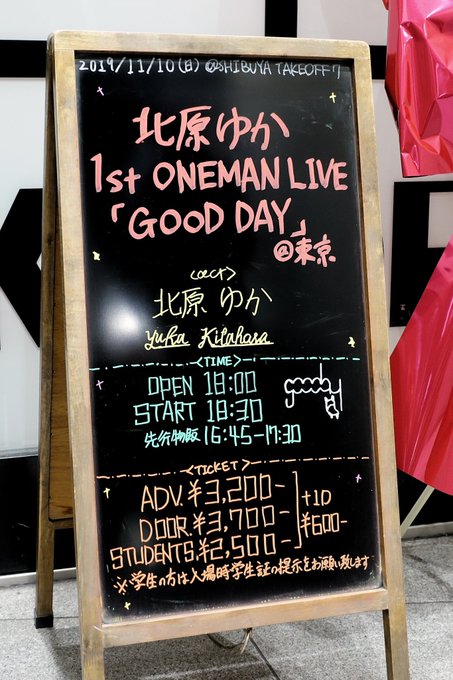 2019/11/10(日) @SHIBUYA TAKEOFF7
北原ゆか
1st ONEMAN LIVE
「GOOD DAY」
@東京
<act>
北原 ゆか
Yuka Kitahara
<TIME>
OPEN 18:00
START 18:30
先行物販 16:45-17:30
goodby
<TICKET>
ADV.¥3,200-
DOOR.¥3,700-
STUDENTS.¥2,500-
+1D
¥600-
※学生の方は入場時学生証の提示をお願い致します